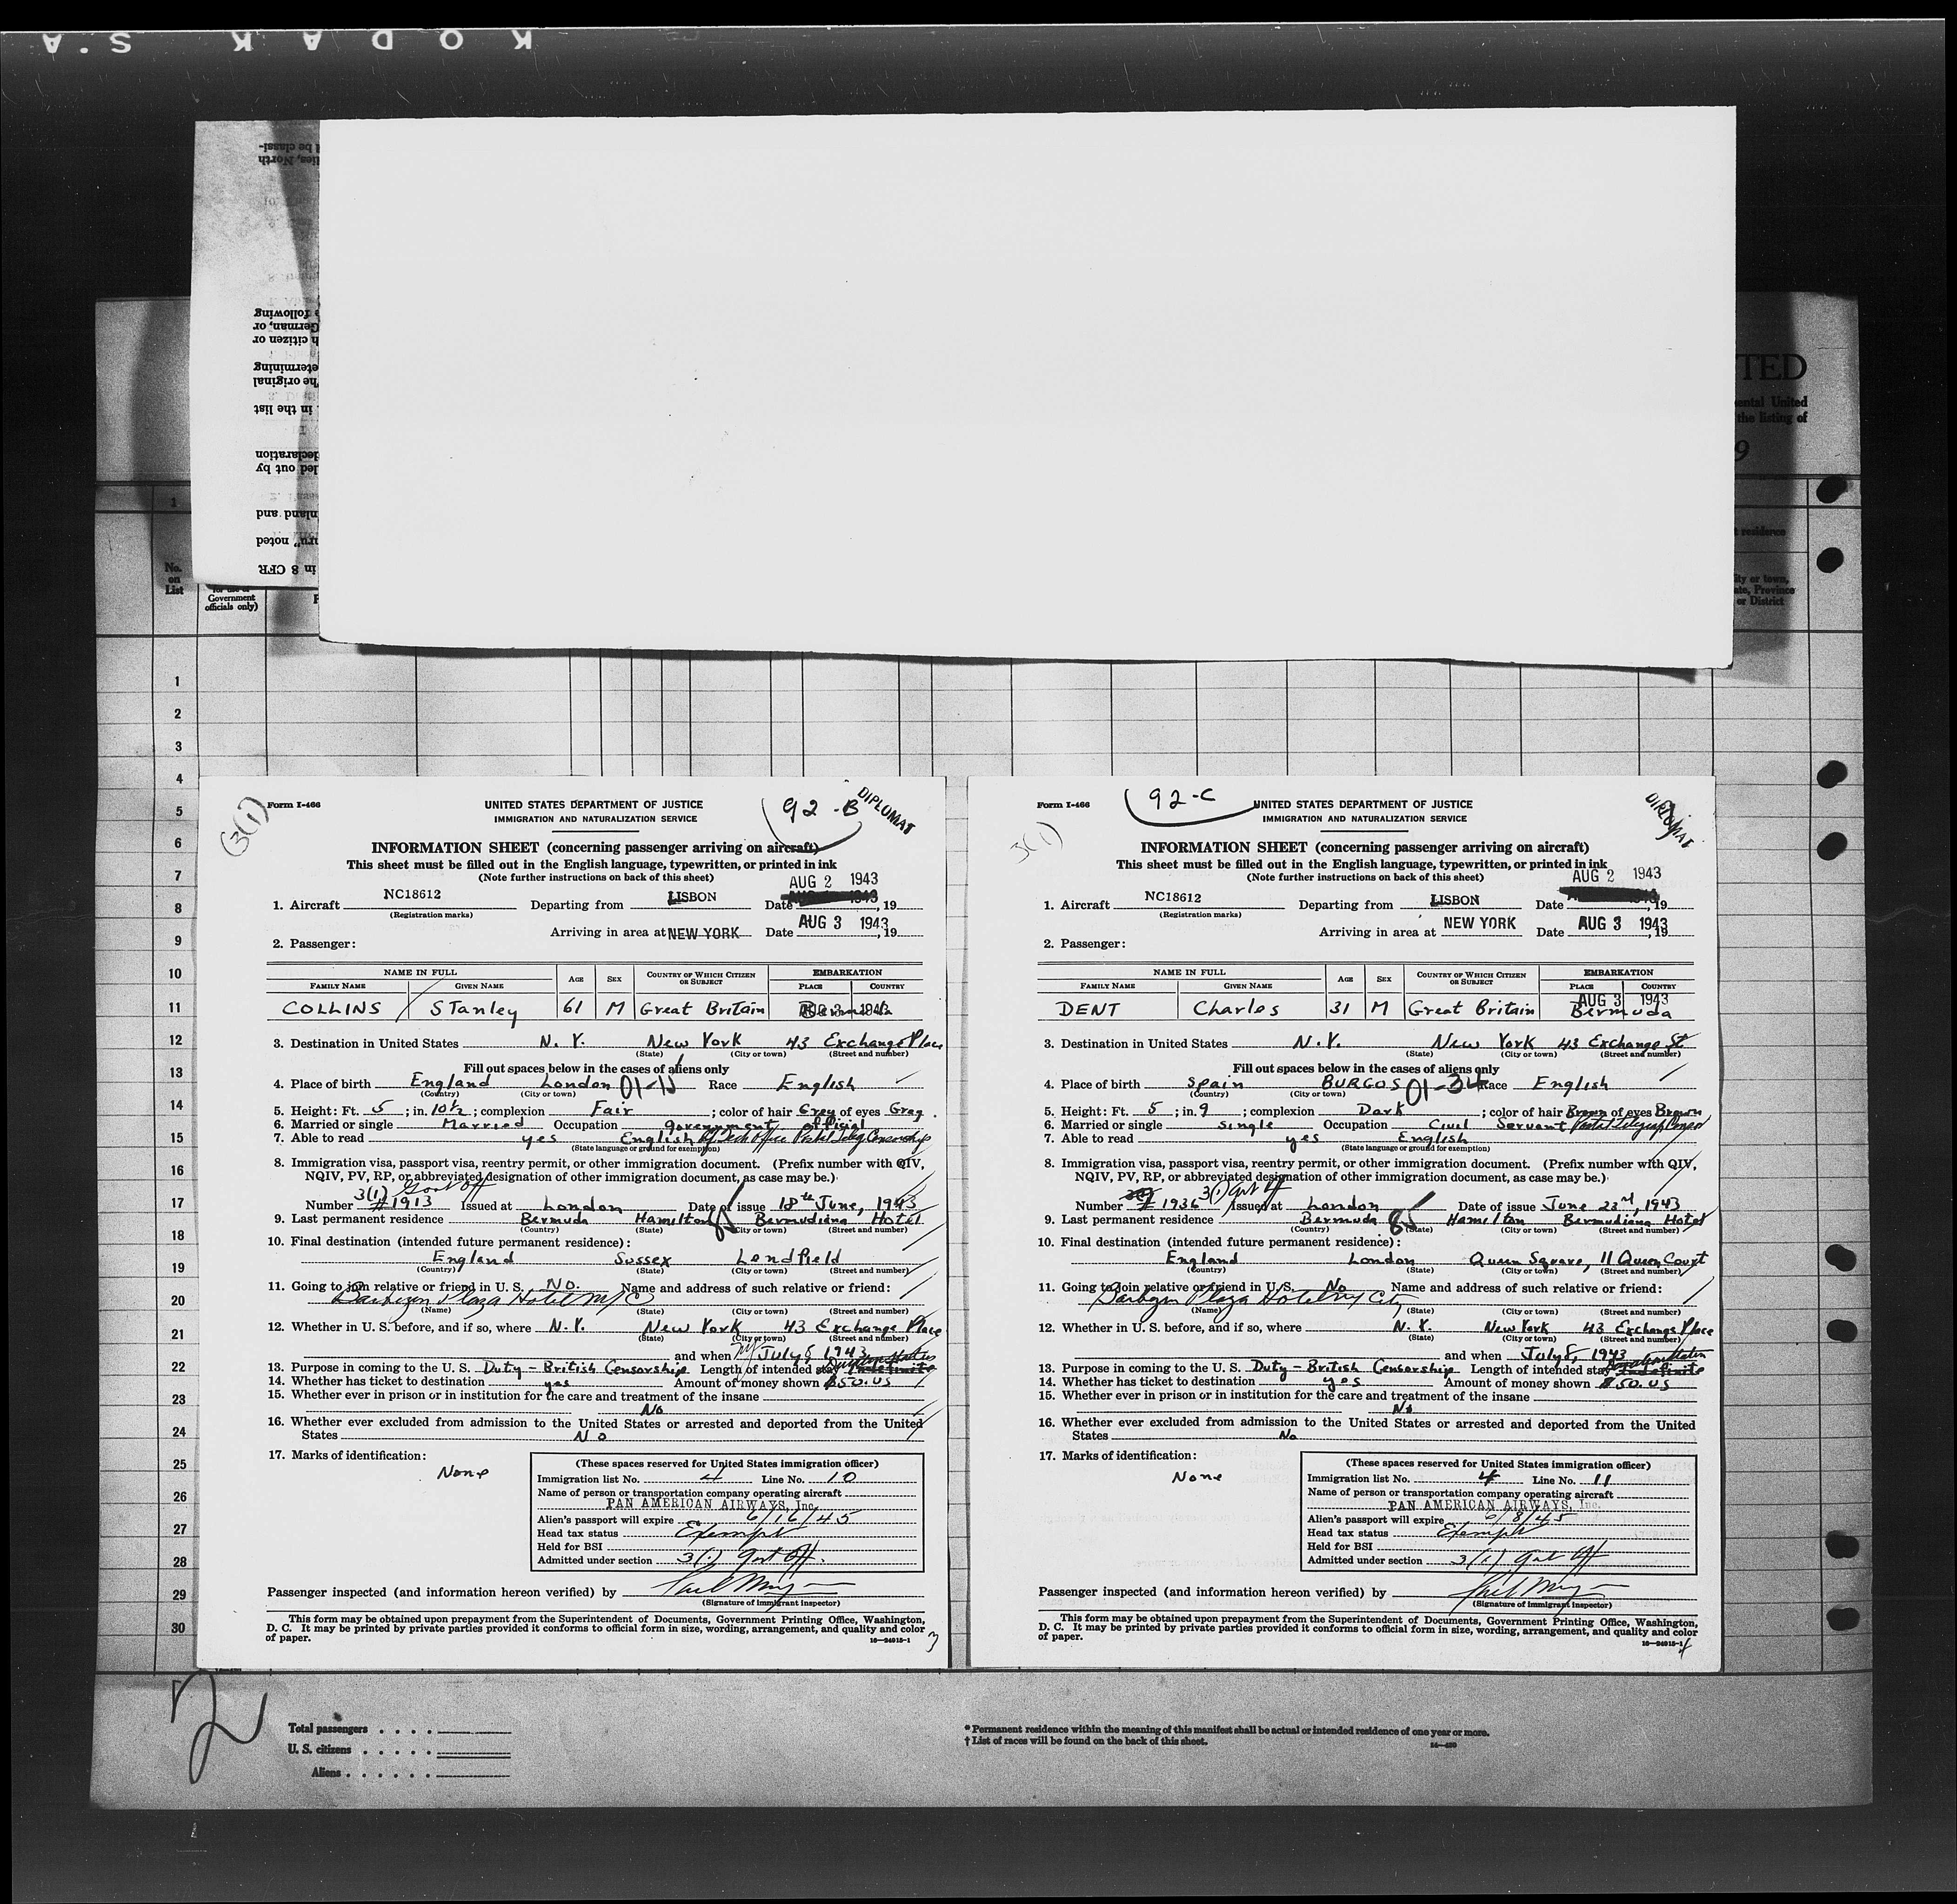 KODAK S.A
-be classi
ties, North
e following
German, or
h citizen or
etermining
he original
in the list
declaration
led out by
nland and
uru" noted
in 8 CFR
TED
ental United
the listing of
9
1
residence
No.
on
List
for use of
Government
officials only)
ity or town,
ate, Province
or District
1
2
3
4
5
6
7
8
9
10
11
12
13
14
15
16
17
18
19
20
21
22
23
24
25
26
27
28
29
30
3(1)
Form I-466
UNITED STATES DEPARTMENT OF JUSTICE
IMMIGRATION AND NATURALIZATION SERVICE
92-B
DIPLOMAT
INFORMATION SHEET (concerning passenger arriving on aircraft)
This sheet must be filled out in the English language, typewritten, or printed in ink
(Note further instructions on back of this sheet)
AUG 2 1943
1. Aircraft NC18612 Departing from LISBON Date , 19
(Registration marks)
Arriving in area at NEW YORK Date AUG 3 1943, 19
2. Passenger:
NAME IN FULL AGE SEX COUNTRY OF WHICH CITIZEN OR SUBJECT EMBARKATION
FAMILY NAME GIVEN NAME PLACE COUNTRY
COLLINS Stanley 61 M Great Britain Bermuda AUG 3 1943
3. Destination in United States N.Y. New York 43 Exchange Place
(State) (City or town) (Street and number)
Fill out spaces below in the cases of aliens only
4. Place of birth England London 01-11 Race English
(Country) (City or town)
5. Height: Ft. 5; in. 10½; complexion Fair; color of hair Grey of eyes Grey
6. Married or single Married Occupation government official
7. Able to read yes English
(State language or ground for exemption)
8. Immigration visa, passport visa, reentry permit, or other immigration document. (Prefix number with QIV,
NQIV, PV, RP, or abbreviated designation of other immigration document, as case may be.)
3(1) Govt Off
Number #1913 Issued at London Date of issue 18th June, 1943
9. Last permanent residence Bermuda Hamilton 85 Bermudiana Hotel
(Country) (State) (City or town) (Street and number)
10. Final destination (intended future permanent residence):
England Sussex Lendfield
(Country) (State) (City or town) (Street and number)
11. Going to join relative or friend in U.S. No. Name and address of such relative or friend:
Barbizon Plaza Hotel NYC
(State) (City or town) (Street and number)
12. Whether in U. S. before, and if so, where N.Y. New York 43 Exchange Place
(State) (City or town) (Street and number)
and when July 8, 1943
13. Purpose in coming to the U. S. Duty - British Censorship Length of intended stay Indefinite
14. Whether has ticket to destination yes Amount of money shown $50. US
15. Whether ever in prison or in institution for the care and treatment of the insane
No
16. Whether ever excluded from admission to the United States or arrested and deported from the United
States No
17. Marks of identification:
None
(These spaces reserved for United States immigration officer)
Immigration list No. 4 Line No. 10
Name of person or transportation company operating aircraft
PAN AMERICAN AIRWAYS, Inc.
Alien's passport will expire 6/16/45
Head tax status Exempt
Held for BSI
Admitted under section 3(1) Govt Off.
Passenger inspected (and information hereon verified) by
(Signature of immigrant inspector)
This form may be obtained upon prepayment from the Superintendent of Documents, Government Printing Office, Washington,
D. C. It may be printed by private parties provided it conforms to official form in size, wording, arrangement, and quality and color
of paper. 16—24015-1
3
3(1)
Form I-466
92-C
UNITED STATES DEPARTMENT OF JUSTICE
IMMIGRATION AND NATURALIZATION SERVICE
DIPLOMAT
INFORMATION SHEET (concerning passenger arriving on aircraft)
This sheet must be filled out in the English language, typewritten, or printed in ink
(Note further instructions on back of this sheet)
AUG 2 1943
1. Aircraft NC18612 Departing from LISBON Date , 19
(Registration marks)
Arriving in area at NEW YORK Date AUG 3 1943, 19
2. Passenger:
NAME IN FULL AGE SEX COUNTRY OF WHICH CITIZEN OR SUBJECT EMBARKATION
FAMILY NAME GIVEN NAME PLACE COUNTRY
AUG 3 1943
DENT Charles 31 M Great Britain Bermuda
3. Destination in United States N.Y. New York 43 Exchange St
(State) (City or town) (Street and number)
Fill out spaces below in the cases of aliens only
4. Place of birth Spain BURGOS 01-34 Race English
(Country) (City or town)
5. Height: Ft. 5; in. 9; complexion Dark; color of hair Brown of eyes Brown
6. Married or single Single Occupation Civil Servant
7. Able to read yes English
(State language or ground for exemption)
8. Immigration visa, passport visa, reentry permit, or other immigration document. (Prefix number with QIV,
NQIV, PV, RP, or abbreviated designation of other immigration document, as case may be.)
3(1) Govt Off
Number # 1936 Issued at London Date of issue June 23rd, 1943
9. Last permanent residence Bermuda 85 Hamilton Bermudiana Hotel
(Country) (State) (City or town) (Street and number)
10. Final destination (intended future permanent residence):
England London Queen Square, 11 Queen Court
(Country) (State) (City or town) (Street and number)
11. Going to join relative or friend in U.S. No Name and address of such relative or friend:
Barbizon Plaza Hotel NY City
(Name) (State) (City or town) (Street and number)
12. Whether in U. S. before, and if so, where N.Y. New York 43 Exchange Place
(State) (City or town) (Street and number)
and when July 8, 1943
13. Purpose in coming to the U. S. Duty - British Censorship Length of intended stay Indefinite
14. Whether has ticket to destination yes Amount of money shown $50. US
15. Whether ever in prison or in institution for the care and treatment of the insane
No
16. Whether ever excluded from admission to the United States or arrested and deported from the United
States No
17. Marks of identification:
None
(These spaces reserved for United States immigration officer)
Immigration list No. 4 Line No. 11
Name of person or transportation company operating aircraft
PAN AMERICAN AIRWAYS, Inc.
Alien's passport will expire 6/8/45
Head tax status Exempt
Held for BSI
Admitted under section 3(1) Govt Off
Passenger inspected (and information hereon verified) by
(Signature of immigrant inspector)
This form may be obtained upon prepayment from the Superintendent of Documents, Government Printing Office, Washington,
D. C. It may be printed by private parties provided it conforms to official form in size, wording, arrangement, and quality and color
of paper. 16—24015-1
4
2
Total passengers . . . .
U. S. citizens . . . . .
Aliens . . . . . .
* Permanent residence within the meaning of this manifest shall be actual or intended residence of one year or more.
† List of races will be found on the back of this sheet.